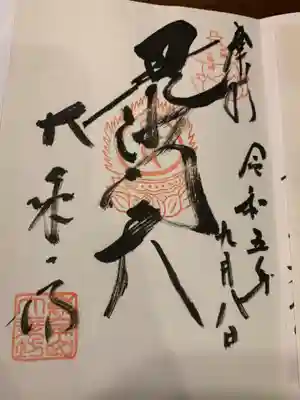 奉拝
令和五年九月八日
毘沙門天
大乗坊